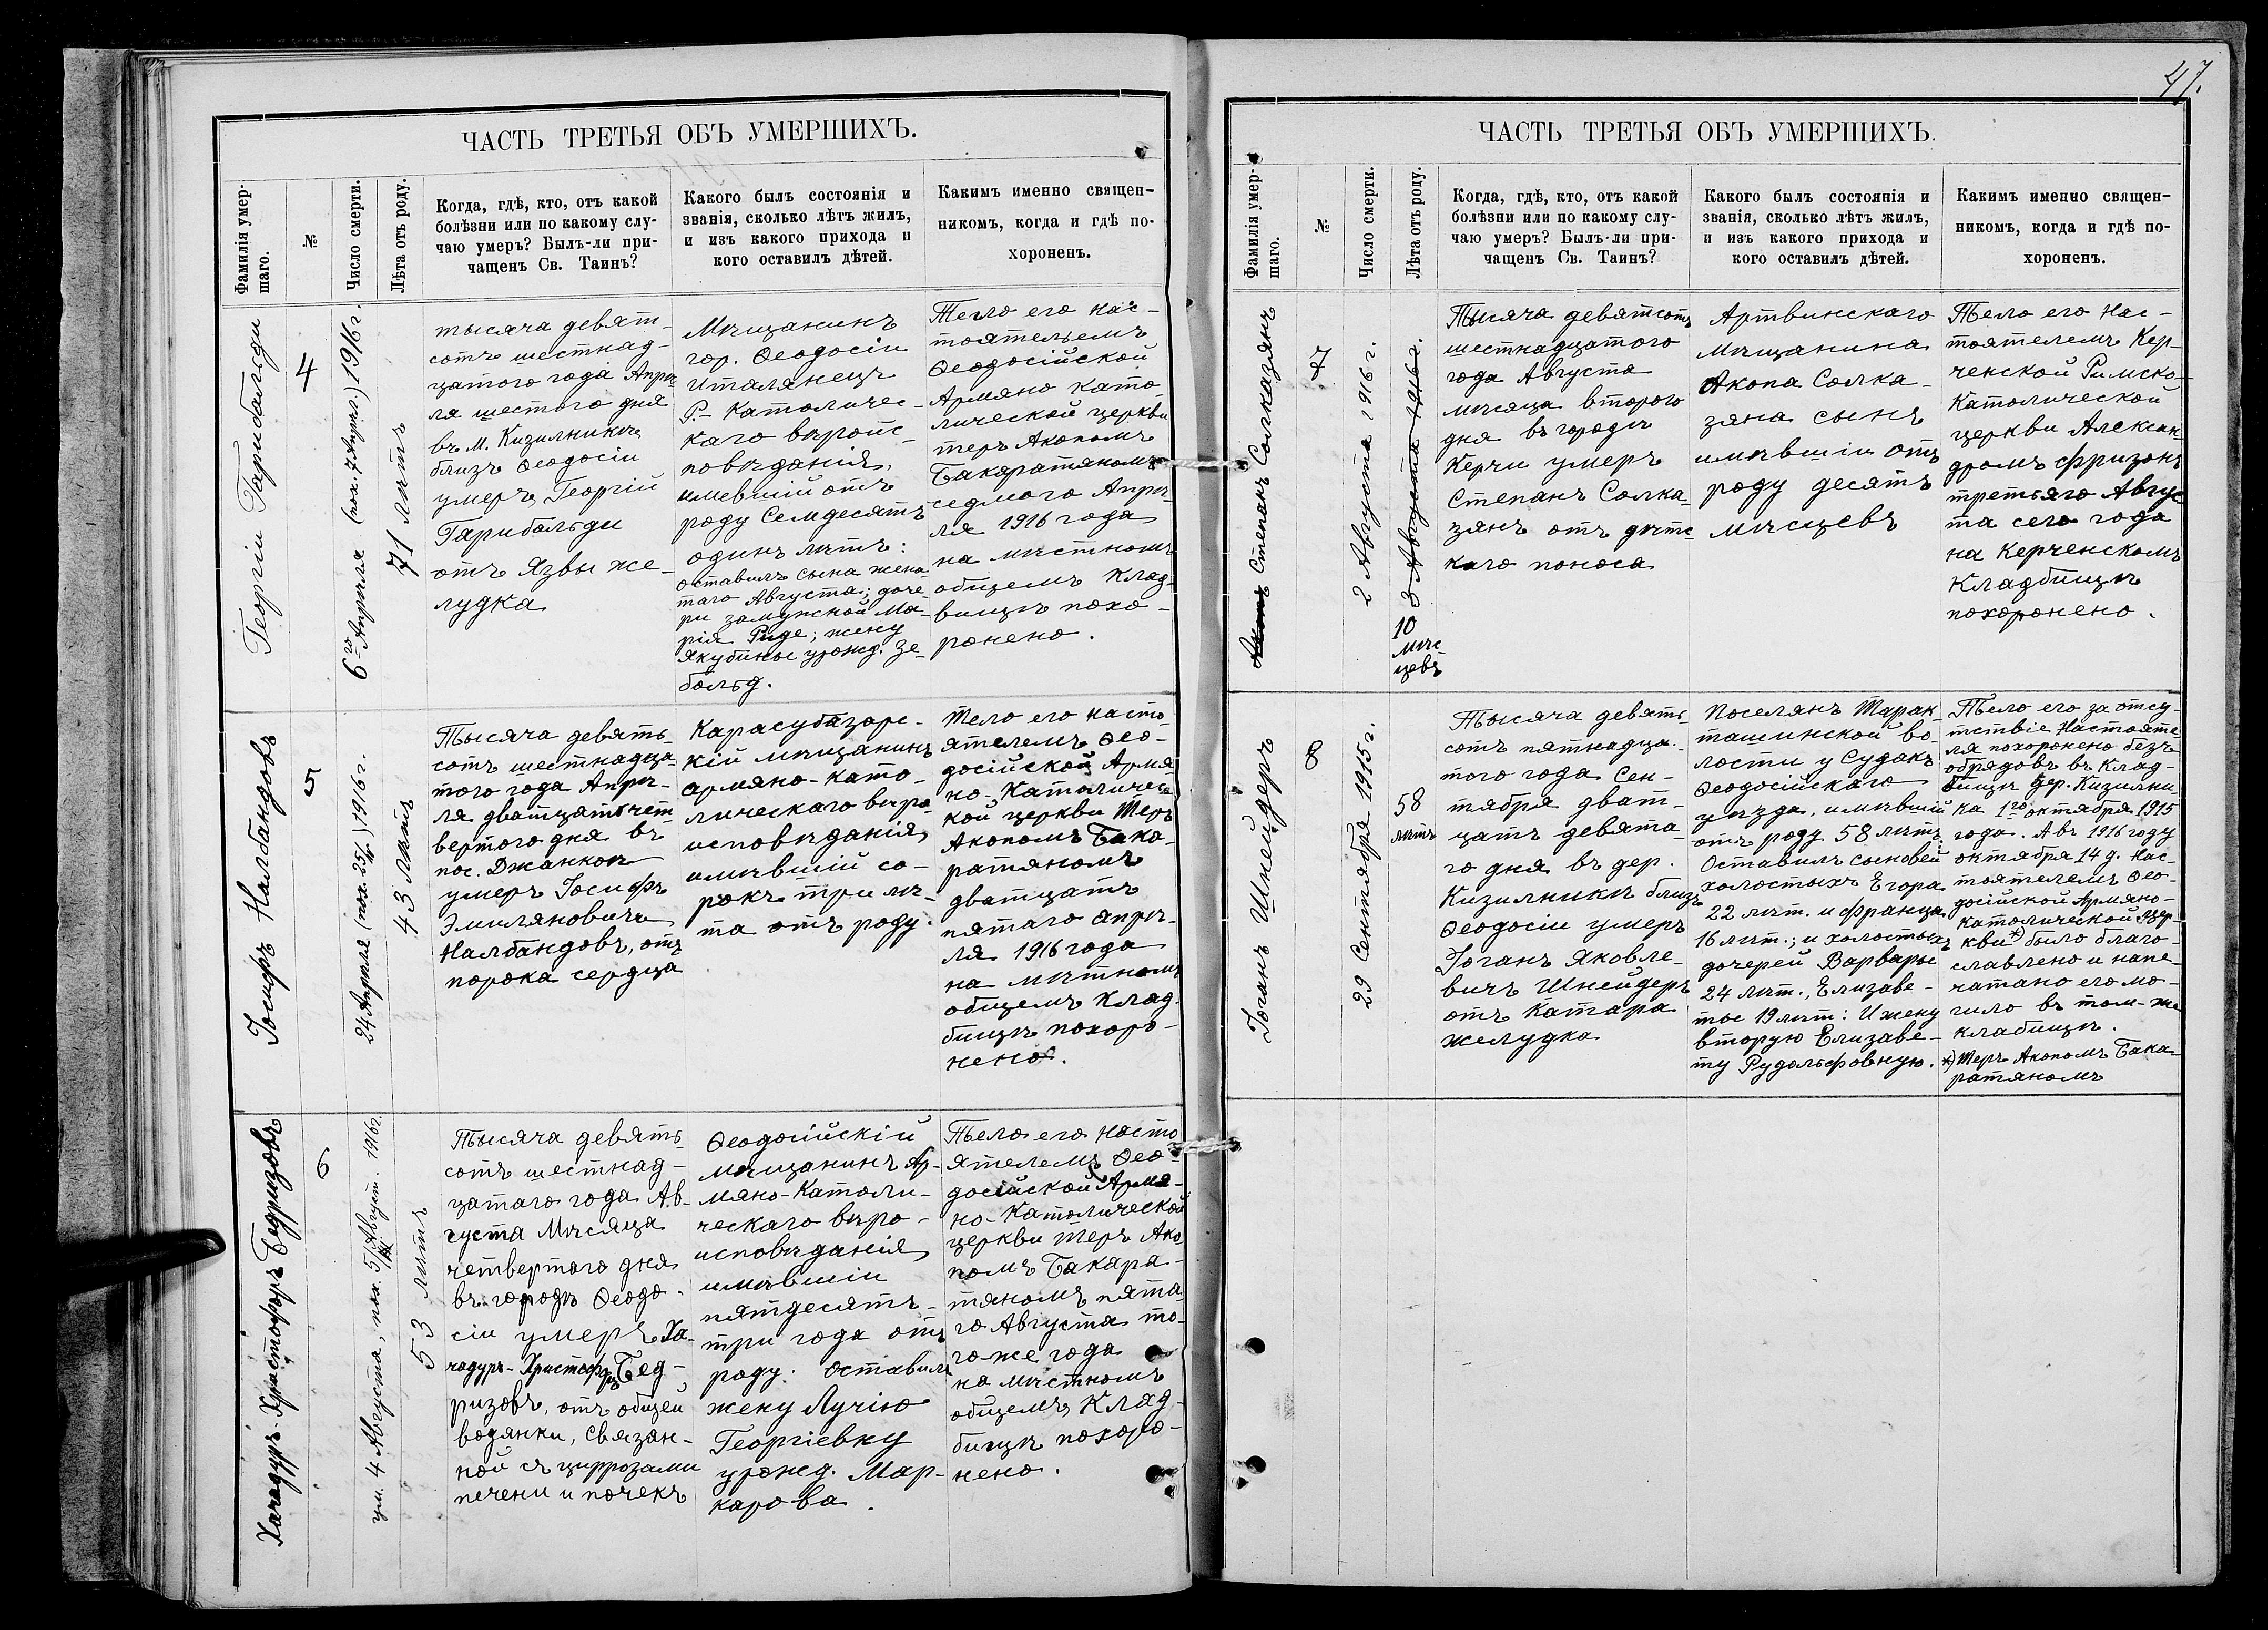 47.
ЧАСТЬ ТРЕТЬЯ ОБЪ УМЕРШИХЪ.
Фамилія умер-
шаго.
№
Число смерти.
Лѣта отъ роду.
Когда, гдѣ, кто, отъ какой
болѣзни или по какому слу-
чаю умеръ? Былъ-ли при-
чащенъ Св. Таинъ?
Какого былъ состоянія и
званія, сколько лѣтъ жилъ,
и изъ какого прихода и
кого оставилъ дѣтей.
Какимъ именно священ-
никомъ, когда и гдѣ по-
хороненъ.
Георгіи Гарибальди
4
6го Апрѣля (пох. 7 Апрѣл.) 1916 г.
71 лѣтъ
тысяча девят-
сотъ шестнад-
цатого года Апрѣ-
ля шестого дня
въ м. Кизилникѣ
близъ Ѳеодосіи
умеръ Георгій
Гарибальди
отъ язвы же-
лудка
Мѣщанинъ
гор. Ѳеодосіи
Италянецъ
Р.-Католичес-
каго вѣроис-
повѣданія,
имевшій отъ
роду Семдесятъ
одинъ лѣтъ:
оставилъ сына жена-
таго Августа; доче-
ри замужской Ма-
рія Риде; жену
Якубины урожд. Зе-
больд.
Тело его нас-
тоятелемъ
Ѳеодосійской
Армяно Като-
лической церкви
теръ Акопомъ
Бакаратяномъ
седмого Апрѣ-
ля 1916 года
на мѣстномъ
общемъ Клад-
вищѣ похо-
ронено.
Іосифъ Налбандовъ
5
24 Апрѣля (пох. 25/IV) 1916 г.
43 лѣтъ
Тысяча девять-
сотъ шестнадца-
того года Апрѣ-
ля дватцатьчет-
вертого дня въ
пос. Джанкоѣ
умеръ Іосифъ
Эмиляновичъ
Налбандовъ, отъ
порока сердца
Карасубазарс-
кій мѣщанинъ
армяно-като-
лическаго вѣро-
исповѣданія
имѣвшій со-
рокъ три лѣ-
та отъ роду.
Тело его насто-
ятелемъ Ѳео-
досійской Армя-
но-Католичес-
кой церкви Теръ
Акопомъ Бака-
ратяномъ
дватцать
пятаго апрѣ-
ля 1916 года
на мѣтномъ
общемъ клад-
бищѣ похоро-
нено.
Хачадуръ-Христофоръ Бедризовъ
6
ум. 4 Августа, пох. 5/ Август. 1916 г.
53 лѣтъ
Тысяча девять-
сотъ шестнад-
цатаго года Ав-
густа Мѣсяца
четвертого дня
въ городѣ Ѳеодо-
сіи умеръ Ха-
чадуръ-Христофоръ Бед-
ризовъ, отъ общей
водянки, связан-
ной съ циррозами
печени и почекъ
Ѳеодосійскій
мѣщанинъ Ар-
мяно-Католи-
ческаго вѣро-
исповѣданія
имѣвшіи
пятдесятъ-
три года отъ
роду. Оставилъ
жену Лучію
Георгіевну
урожд. Мар-
карова.
Тѣело его насто-
ятелемъ Ѳео-
досійской Армя-
но-Католической
церкви теръ Ако-
помъ Бакара-
тяномъ пята-
го Августа то-
го-же года
на мѣстномъ
общемъ Клад-
бищѣ похоро-
нено.
ЧАСТЬ ТРЕТЬЯ ОБЪ УМЕРШИХЪ.
Фамилія умер-
шаго.
№
Число смерти.
Лѣта отъ роду.
Когда, гдѣ, кто, отъ какой
болѣзни или по какому слу-
чаю умеръ? Былъ-ли при-
чащенъ Св. Таинъ?
Какого былъ состоянія и
званія, сколько лѣтъ жилъ,
и изъ какого прихода и
кого оставилъ дѣтей.
Какимъ именно священ-
никомъ, когда и гдѣ по-
хороненъ.
Степанъ Солказянъ
7
2 Августа 1916 г.
3 Августа 1916 г.
10
мѣс-
цевъ
Тысяча девятсотъ
шестнадцатого
года Августа
мѣсяца второго
дня въ городѣ
Керчи умеръ
Степанъ Солка-
зянъ отъ дѣтс-
каго поноса
Артвинскаго
мѣщанина
Акопа Солка-
зяна сынъ
имѣвшіи отъ
роду десять
мѣсцевъ
Тѣело его Нас-
тоятелемъ Кер-
ченской Римско-
Католической
церкви Алексан-
дромъ Фризонъ
третьяго Авгус
та сего года
на Керченскомъ
Кладбищѣ
похоронено.
Іоганъ Шнейдеръ
8
29 Сентября 1915 г.
58
лѣтъ
Тысяча девять-
сотъ пятнадца-
того года Сен-
тября дват-
цатъ девята-
го дня въ дер.
Кизилникѣ близъ
Ѳеодосіи умеръ
Іоганъ Яковле-
вичъ Шнейдеръ
отъ катара
желудка
Поселянъ Тарак-
ташинской во-
лости у Судакъ
Ѳеодосійскаго
уѣзда, имѣвшій
отъ роду 58 лѣтъ.
Оставилъ сыновей
холостыхъ Егора
22 лѣт. и Франца
16 лѣт.; и холостыхъ
дочерей Варвары
24 лѣт., Елизаве-
тые 19 лѣт: И жену
вторую Елизаве-
ту Рудольфовную.
Тѣело его за отсу-
тствіе Настояте-
ля похоронено безъ
обрядовъ въ Клад-
бищѣ дер. Кизилни-
ка 1го октября 1915
года. А въ 1916 году
октября 14 д. Нас-
тоятелемъ Ѳео-
досійской Армяно-
Католической Цер-
кви*) было благо-
славлено и напе-
чатано его мо-
гило въ том-же
клабищѣ.
*) Теръ Акопомъ Бака-
ратяномъ